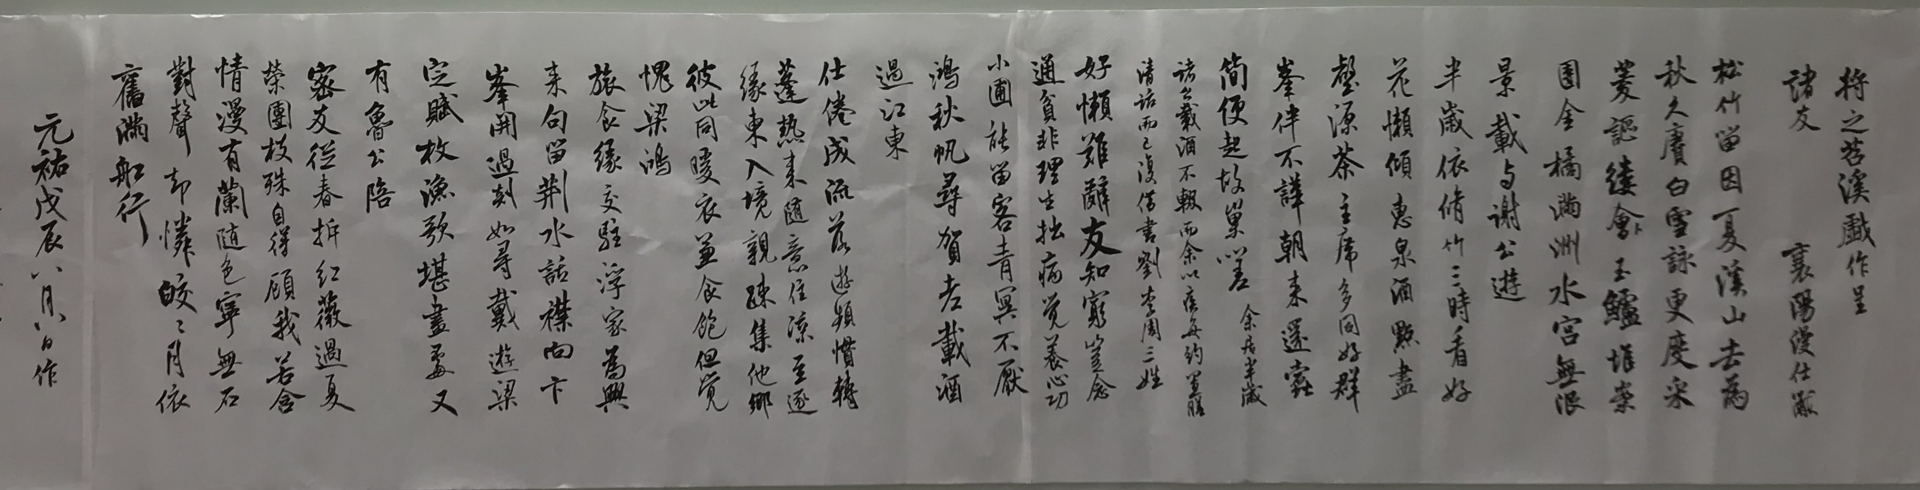 将之苕溪戲作呈
諸友 襄陽漫仕黻
松竹留因夏溪山去為
秋久賡白雪詠更度采
菱謳縷會玉鱸堆案
團金橘滿洲水宫無限
景載与謝公遊
半歲依脩竹三時看好
花懶傾惠泉酒點盡
壑源茶主席多同好群
峯伴不譁朝来還蠹
簡便起故巢嗟 余居半歲
諸公載酒不輟而余以疾每約置膳
清話而已復借書劉李周三姓
好懶難辭友知窮豈念
通貧非理生拙病覺養心功
小圃能留客青冥不厭
鴻秋帆尋賀老載酒
過江東
仕倦成流落遊頻慣轉
蓬熱来隨意住涼至逐
緣東入境親疎集他鄉
彼此同暖衣兼食飽但覺
愧梁鴻
旅食緣交駐浮家為興
来句留荆水話襟向卞
峯開過剡如尋戴遊梁
定賦枚漁歌堪畫䖏又
有魯公陪
密友從春拆紅薇過夏
榮團枝殊自得顧我若含
情漫有蘭隨色寧無石
對聲却憐皎〻月依
舊滿船行
元祐戊辰八月八日作